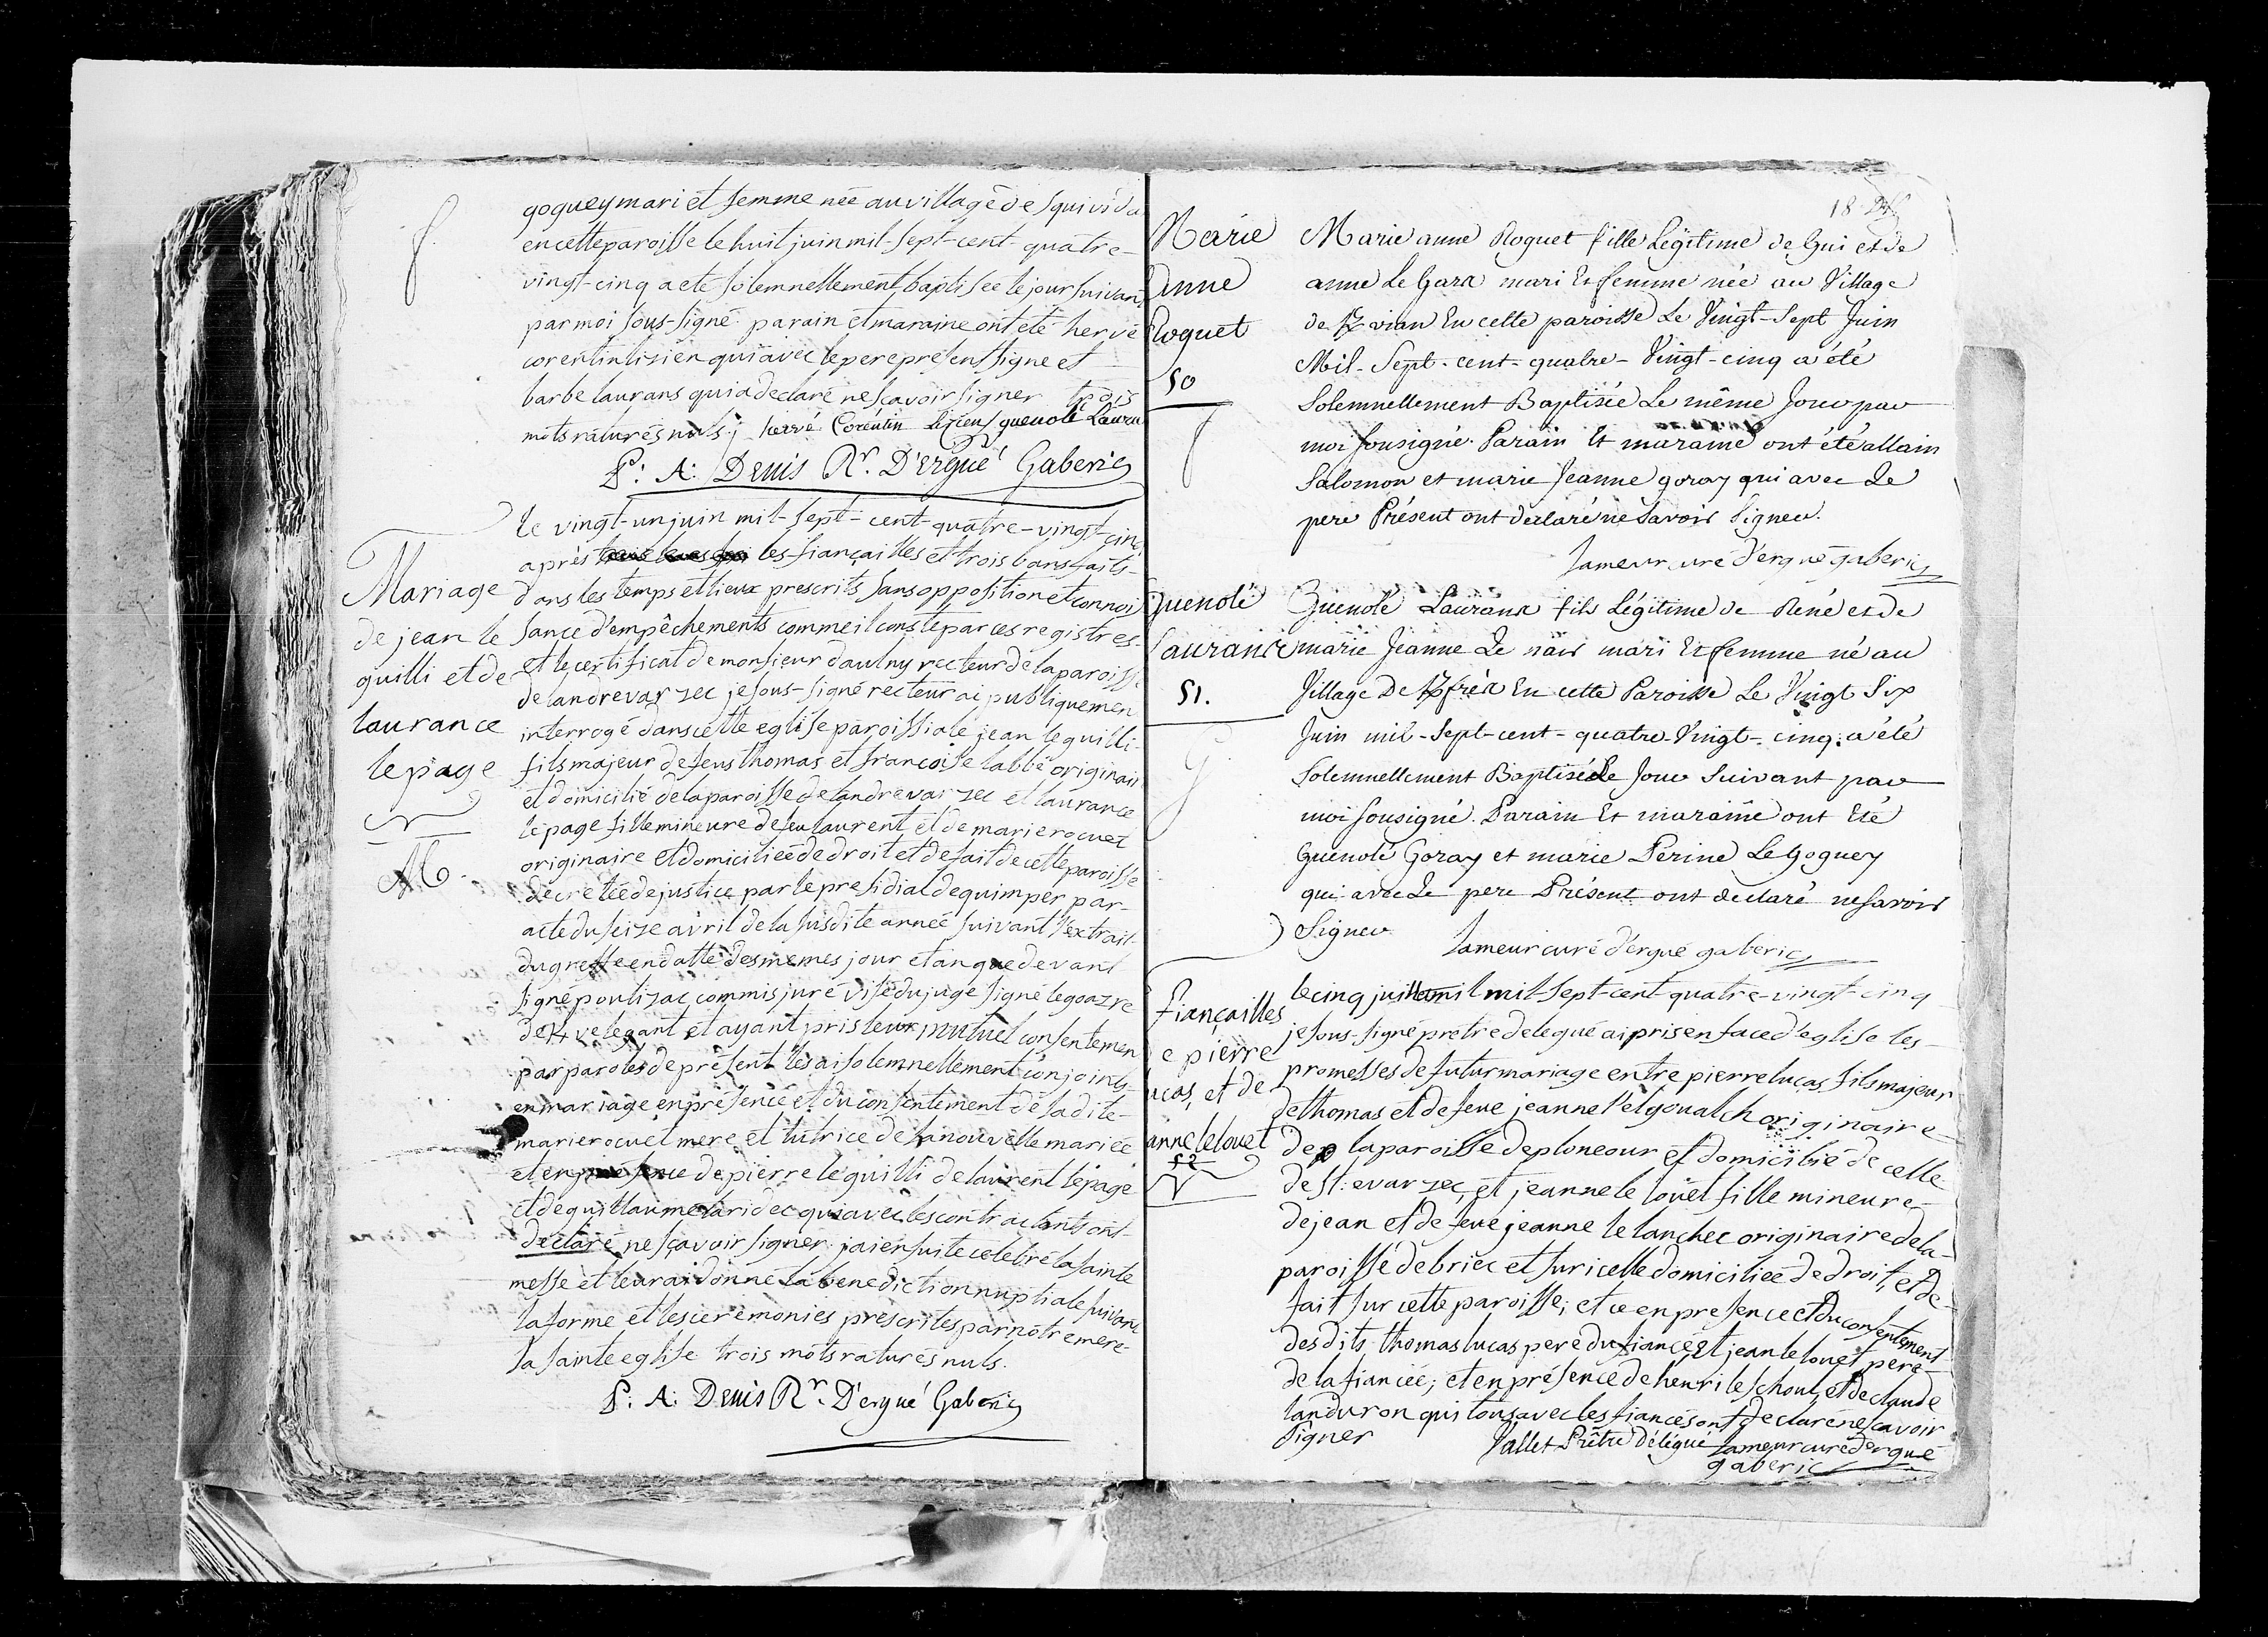 goguey mari et femme née au village de squivida
en cette paroisse le huit juin mil-sept-cent-quatre-
vingt-cinq a eté solemnellement baptisée le jour suivant
par moi sous-signé. parain et maraine ont eté hervé
corentin lizien qui avec le pere présent signe et
barbe laurans qui a declaré ne sçavoir signer trois
mots raturés nuls; hervé Coréntin Lizien guenolé Lauran
P: A: Denis Rr. D'ergué Gaberic
Mariage
de jean le
quilli et de
laurance
le page
M.
le vingt-un juin mil-sept-cent-quatre-vingt-cinq
après les fiançailles et trois bans faits
dans les temps et lieux prescrits sans opposition et connois
sance d'empêchements comme il conste par ces registres
et le certificat de monsieur daulny recteur de la paroisse
de landrevarzec je sous-signé recteur ai publiquemen
interrogé dans cette eglise paroissiale jean le quilli
fils majeur de feus thomas et francoise labbé originair
et domicilié de la paroisse de landrevarzec et laurance
le page fille mineure de feu laurent et de marie rocuet
originaire et domiciliée de droit et de fait de cette paroisse
décrétée de justice par le presidial de quimper par-
acte du seize avril de la susdite année suivant l'extrait
du greffe en datte des mêmes jour et an que devant
signé poulizac commis juré visé du juge signé le goazre
de K/velegant et ayant pris leur mutuel consentemen
par paroles de présent les ai solemnellement conjoints
en mariage en présence et du consentement de la dite
marie rocuet mere et tutrice de la nouvelle mariée
et en présence de pierre le quilli de laurent le page
et de guillaume laridec qui avec les contractants ont
declaré ne sçavoir signer. j'ai ensuite celebré la sainte
messe et leur ai donné la benediction nuptiale suivant
la forme et les ceremonies prescrites par notre mere
la sainte eglise trois mots raturés nuls.
P: A: Denis Rr. D'ergué Gaberic
18
Marie
Anne
Roguet
50
Marie anne Roguet fille Légitime de Gui et de
anne Le Gars mari Et femme née au Village
de K/vian En cette paroisse Le Vingt-Sept Juin
Mil-Sept-cent-quatre-Vingt-cinq a été
Solemnellement Baptisée Le même Jour par
moi sousigné. Parain Et maraine ont été allain
Salomon et marie Jeanne goray qui avec Le
pere Présent ont déclaré ne Savoir Signer.
Lameur curé d'ergué gaberic
Guenolé
Laurans
51.
Guenolé Laurans fils Légitime de René et de
marie Jeanne Le naïr mari Et femme né au
Village De K/frés En cette Paroisse Le Vingt Six
Juin mil-Sept-cent-quatre-Vingt-cinq a été
Solemnellement Baptisé Le Jour Suivant par
moi sousigné. Parain Et maraine ont Eté
Guenolé Goray et marie Perine Le Goguey
qui avec Le pere Présent ont declaré ne Savoir
Signer.
Lameur curé d'ergué gaberic
fiançailles
e pierre
ucas, et de
anne le louet
52
le cinq juillet mil-sept-cent-quatre-vingt-cinq
je sous-signé prêtre delegué ai pris en face d'eglise les
promesses de futur mariage entre pierre lucas fils majeur
de thomas et de feue jeanne l'elgoualch originaire
de la paroisse de ploneour et domicilié de celle
de st: evarzec et jeanne le louët fille mineure
de jean et de feue jeanne le lanchec originaire de la
paroisse de briec et sur icelle domiciliée de droit, et de
fait sur cette paroisse; et ce en presence et du consentement
des dits thomas lucas pere du fiancé, et jean le louet pere
de la fiancée; et en présence de henri le schout, et de claude
landuron qui tous avec les fiancés ont declaré ne sçavoir
signer
Jallet Prêtre Délégué Lameur curé d'ergué
gaberic